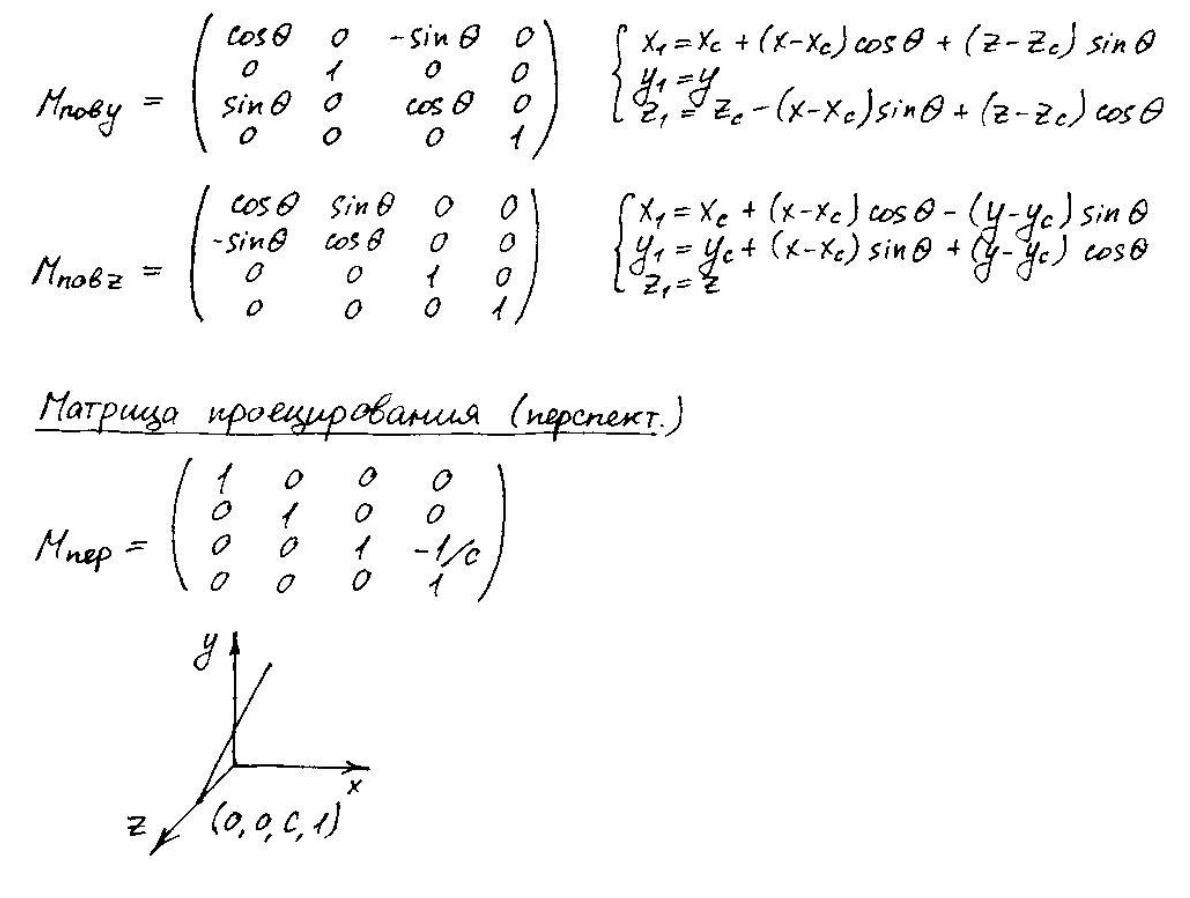 M_повy = ( cosθ 0 -sinθ 0 ; 0 1 0 0 ; sinθ 0 cosθ 0 ; 0 0 0 1 )
{ x₁ = x_c + (x-x_c) cosθ + (z-z_c) sinθ
y₁ = y
z₁ = z_c - (x-x_c) sinθ + (z-z_c) cosθ
M_повz = ( cosθ sinθ 0 0 ; -sinθ cosθ 0 0 ; 0 0 1 0 ; 0 0 0 1 )
{ x₁ = x_c + (x-x_c) cosθ - (y-y_c) sinθ
y₁ = y_c + (x-x_c) sinθ + (y-y_c) cosθ
z₁ = z
Матрица проецирования (перспект.)
M_пер = ( 1 0 0 0 ; 0 1 0 0 ; 0 0 1 -1/c ; 0 0 0 1 )
y
x
z (0, 0, c, 1)